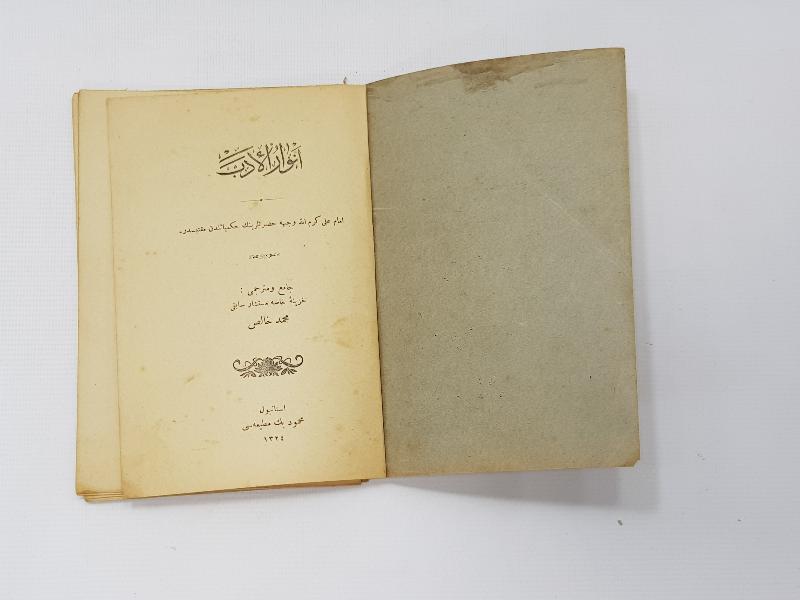 انوار الأدب
امام علی کرم الله وجهه حضرتلرینك حکمیاتندن مقتبسدر.
جامع و مترجمی :
خزینۀ خاصه مستشار سابقی
محمد خالص
استانبول
محمود بك مطبعه‌سی
١٣٢٤